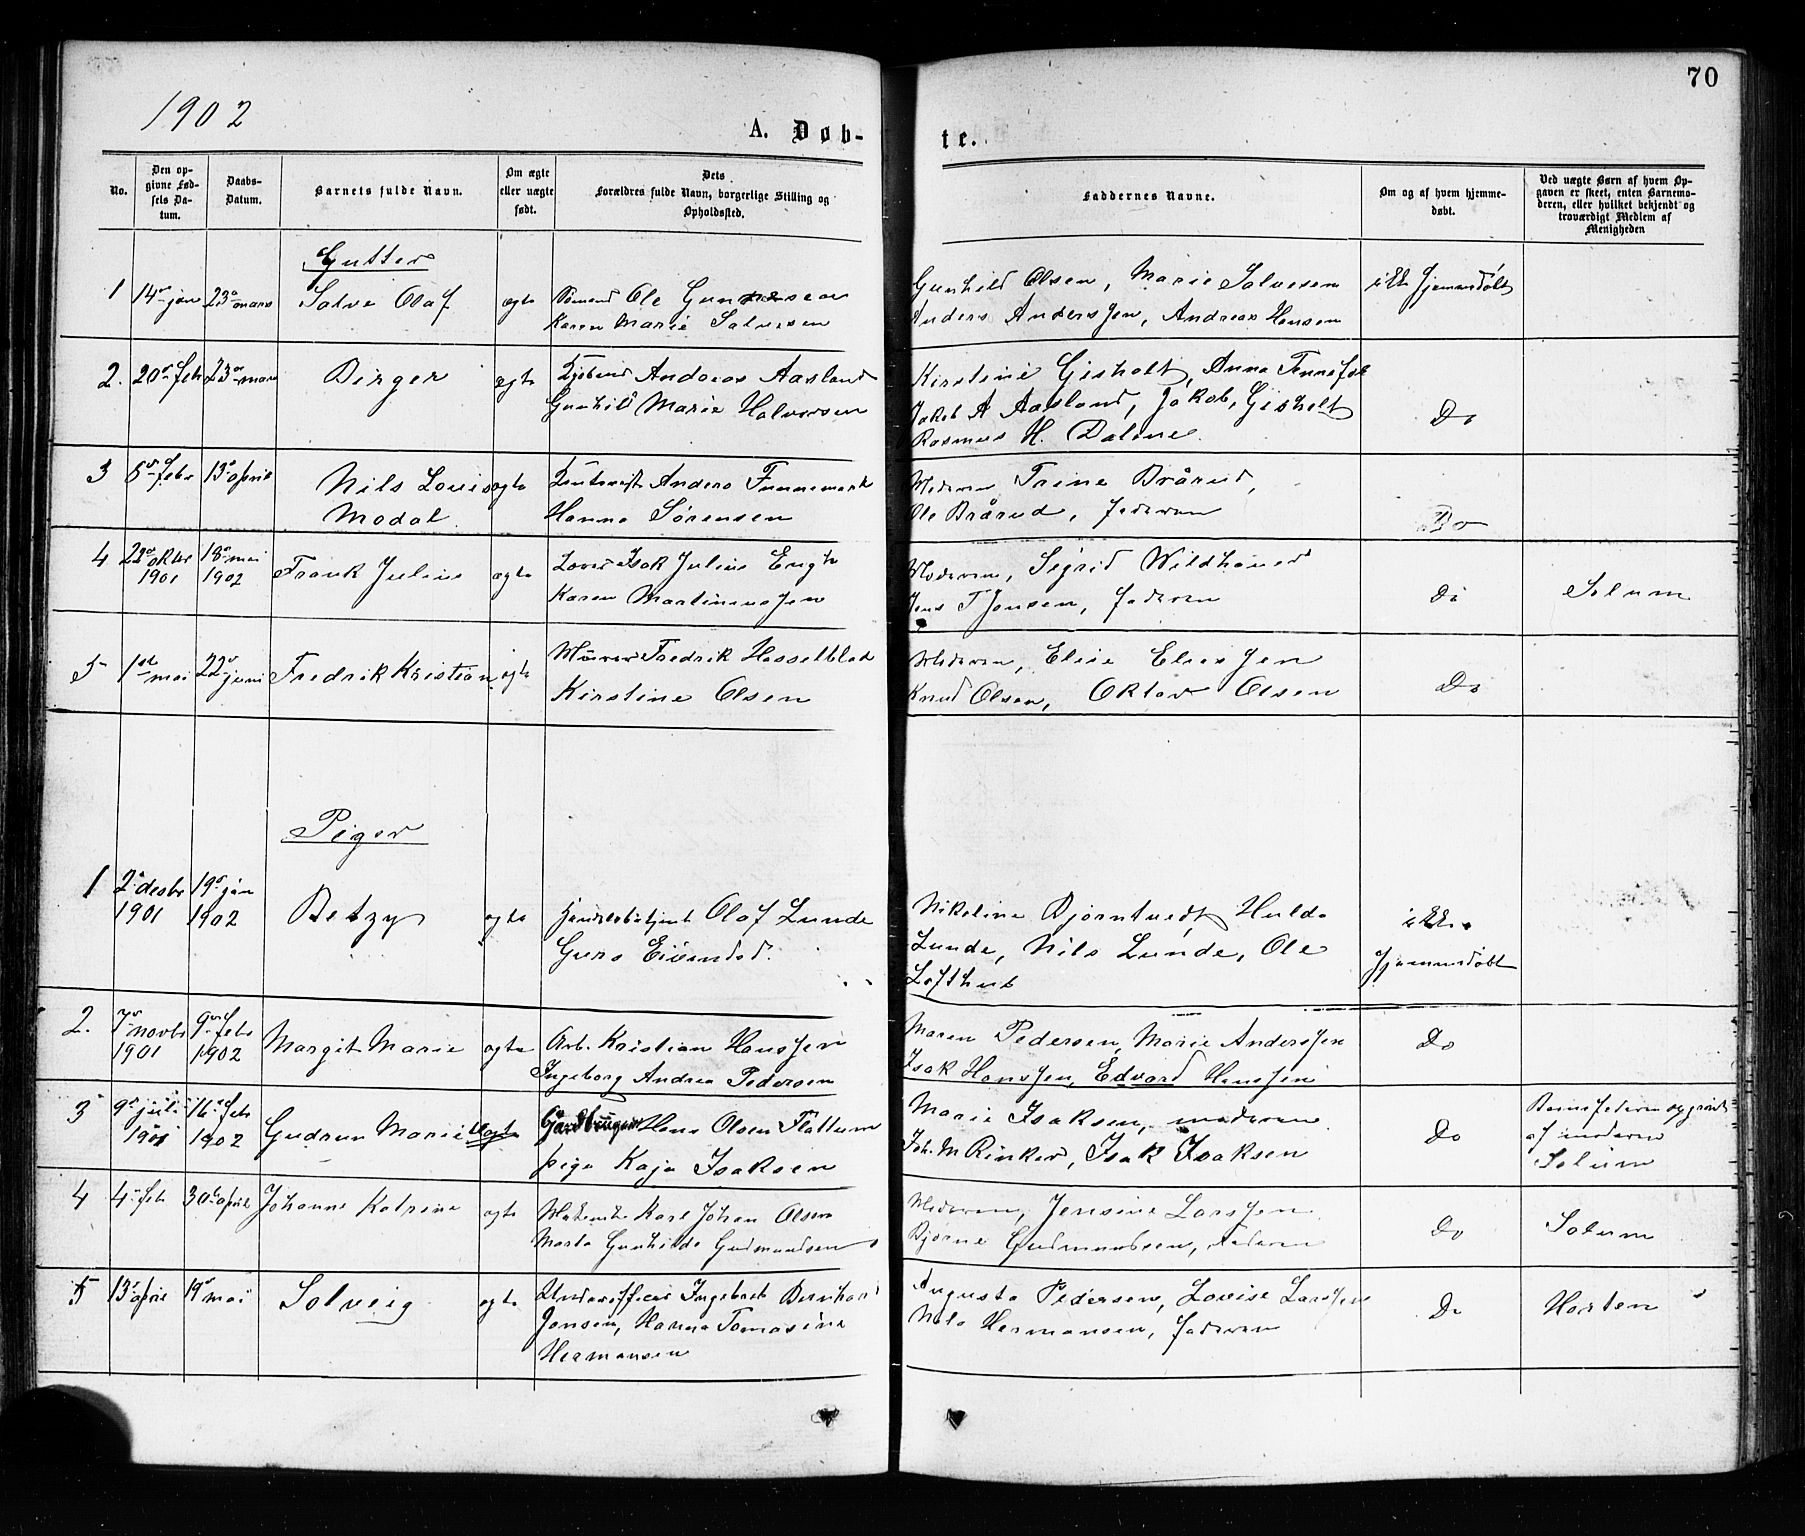 70
1902
A. Døb-
te.
No.
Den op-
givne Fød-
sels Da-
tum.
Daabs-
Datum.
Barnets fulde Navn.
Om ægte
eller uægte
født.
Dets
Forældres fulde Navn, borgerlige Stilling og
Opholdssted.
Faddernes Navne.
Om og af hvem hjemme-
døbt.
Ved uægte Børn af hvem Op-
gaven er skeet, enten Barnemo-
deren, eller hvilket bekjendt og
troværdigt Medlem af
Menigheden
Gutter
1 14de jan 23de mars Salve Olaf ægte Sømand Ole Gunnersen
Karen Marie Salvesen
Gunhild Olsen, Marie Salvesen
Anders Anderssen, Andreas Hansen
ikke hjemmedøbt
2. 20de feb 23de mars Birger ægte Andreas Aasland
Gunhild Marie Halvorsen
Kirstine Gisholt, Anna
Jakob A Aasland, Jakob Gisholt
Rasmus H. Dalene.
Do
3 5de febr 13de april Nils Louis ægte Anders Funnemark
Modal Hanna Sørensen
Moderen Trine Brårud,
Ole Brårud, faderen
Do
4 oktbr 18de mai
1901 1902 Frank Julius ægte Isak Julius Engh
Karen Martinussen
Moderen, Sigrid Wildhauer
Jens T Jensen, faderen
Do
Solum
5 1ste mai 22de juni Fredrik Kristian ægte Murer Fredrik Hasselblad
Kirstine Olsen
Moderen, Elise Eliassen
Knud Olsen, Oktav Olsen
Do
Piger
1 2de desbr 19de jan
1901 1902 Betzy ægte Handelsbetjent Olaf Lunde
Guro
Nikoline Bjørntvedt Hulda
Lunde, Nils Lunde, Ole
Lofthus
ikke
hjemmedøbt
2. 7de novbr 9de feb
1901 1902 Margit Marie ægte Arb. Kristian Hanssen
Ingeborg Andrea Pedersen
Maren Pedersen, Marie Anderssen
Isak Hanssen, Edvard Hanssen
Do
3 9de juli 16de feb
1901 1902 Gudrun Marie uægte Gårdbruger Hans Olsen Flattum
pige Kaja Isaksen
Marie Isaksen, moderen
Joh. M Rinker, Isak Isaksen
Do
Barnefaderen opgivet
af moderen
Solum
4 4de feb 30te april Johanne Katrine ægte Karl Johan Olsen
Marta Gunhilde Gudmundsen
Moderen, Jensine Larssen
Bjarne Gudmundsen, Faderen
Do
Solum
5 13de april 19de mai Solveig ægte Underofficer Ingebret Bernhard
Jansen, Hanna Tomasine
Hermansen
Augusta Pedersen, Lovise Larssen
Nils Hermansen, faderen
Do
Horten